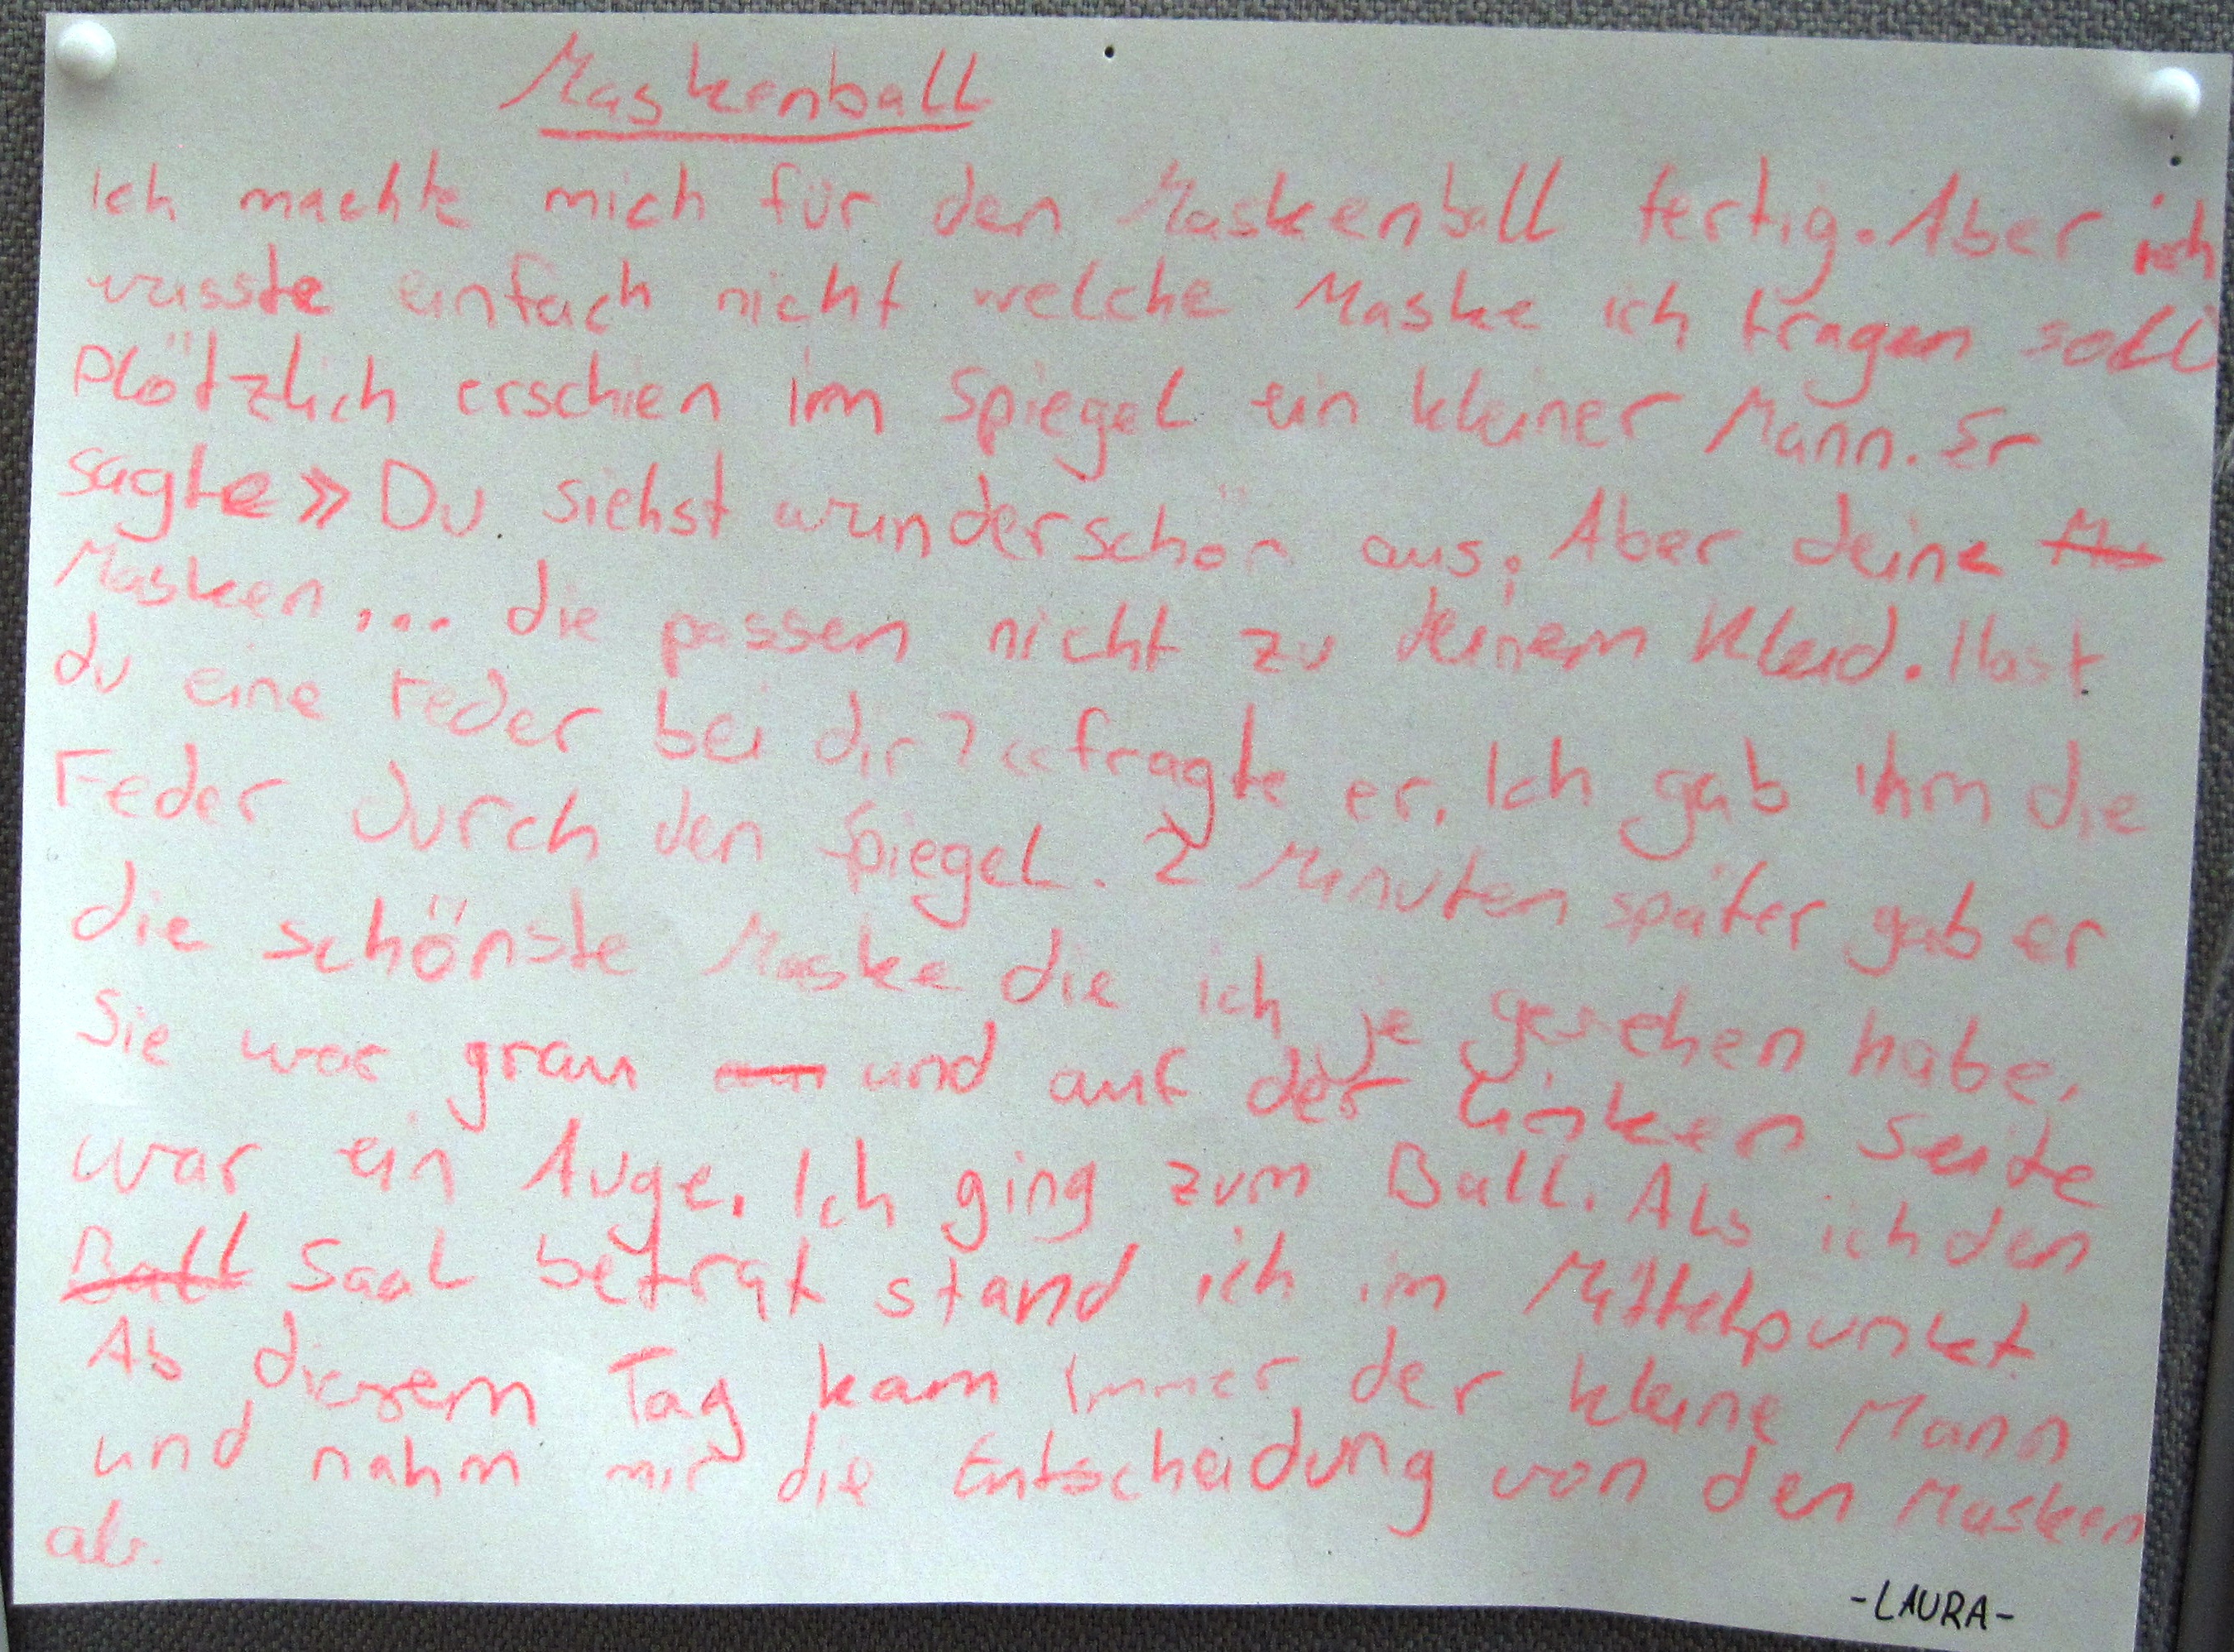 Maskenball
Ich machte mich für den Maskenball fertig. Aber ich
wusste einfach nicht welche Maske ich tragen soll
Plötzlich erschien im Spiegel ein kleiner Mann. Er
sagte » Du siehst wunderschön aus. Aber deine
Masken... die passen nicht zu deinem Kleid. Hast
du eine Feder bei dir? « fragte er. Ich gab ihm die
Feder durch den Spiegel. 2 Minuten später gab er
die schönste Maske die ich je gesehen habe.
Sie war grau und auf der linken Seite
war ein Auge. Ich ging zum Ball. Als ich den
Ball Saal betrat stand ich im Mittelpunkt
Ab diesem Tag kam immer der kleine Mann
und nahm mir die Entscheidung von den Masken
ab.
-LAURA-